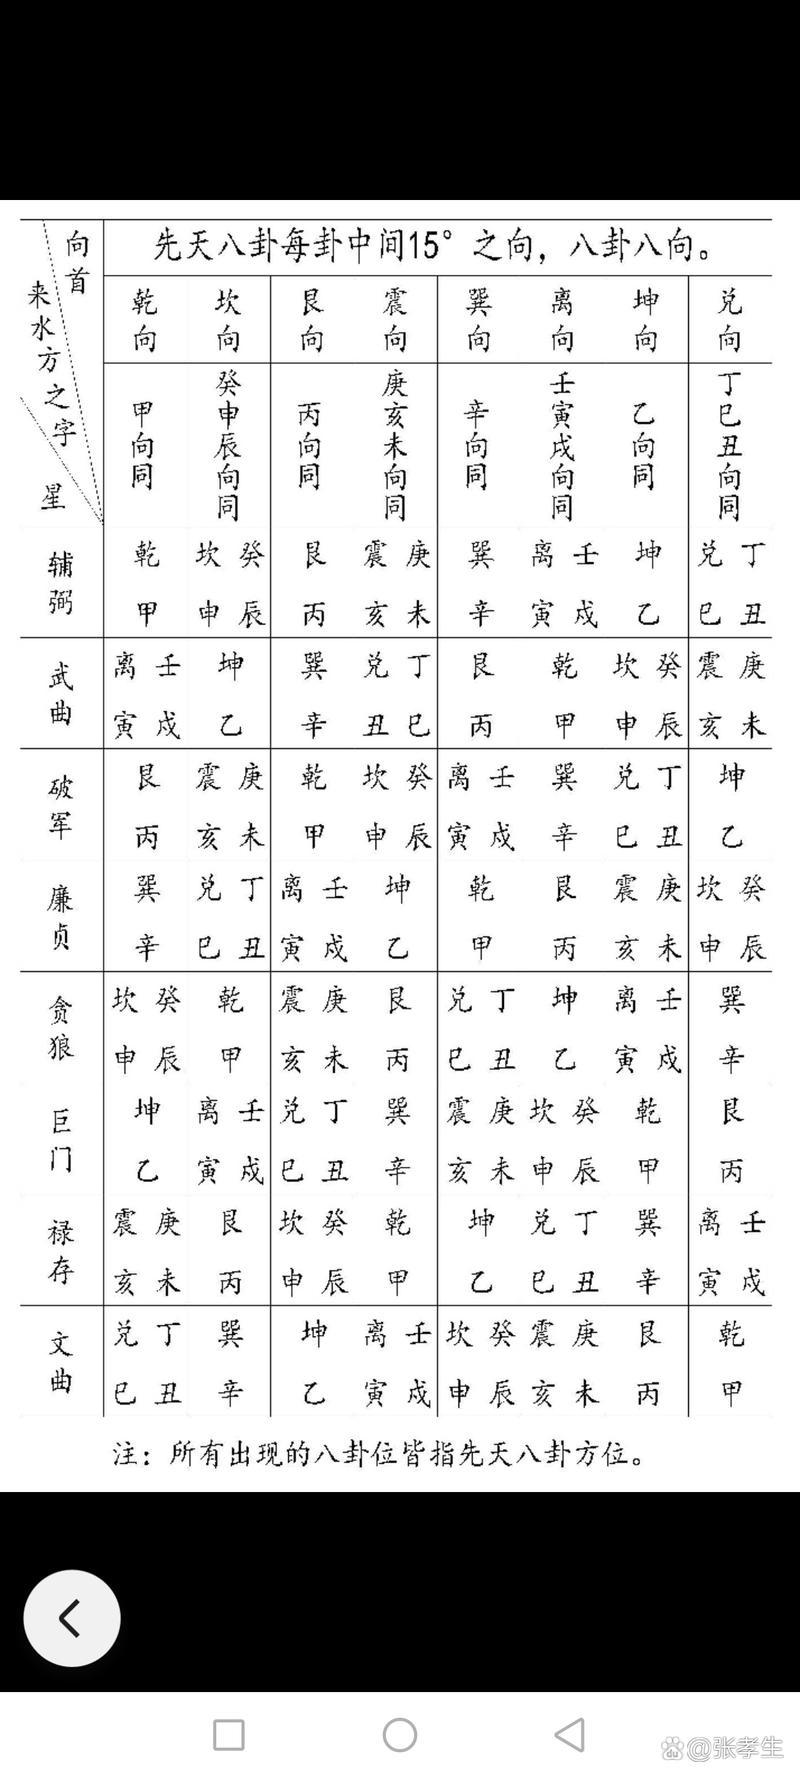 向首
来水方之字
星
先天八卦每卦中间15°之向，八卦八向。
乾向 坎向 艮向 震向 巽向 离向 坤向 兑向
甲向同 癸申辰向同 丙向同 庚亥未向同 辛向同 壬寅戌向同 乙向同 丁巳丑向同
辅弼
乾 坎癸 艮 震庚 巽 离壬 坤 兑丁
甲 申辰 丙 亥未 辛 寅戌 乙 巳丑
武曲
离壬 坤 巽 兑丁 艮 乾 坎癸 震庚
寅戌 乙 辛 丑巳 丙 甲 申辰 亥未
破军
艮 震庚 乾 坎癸 离壬 巽 兑丁 坤
丙 亥未 甲 申辰 寅戌 辛 巳丑 乙
廉贞
巽 兑丁 离壬 坤 乾 艮 震庚 坎癸
辛 巳丑 寅戌 乙 甲 丙 亥未 申辰
贪狼
坎癸 乾 震庚 艮 兑丁 坤 离壬 巽
申辰 甲 亥未 丙 巳丑 乙 寅戌 辛
巨门
坤 离壬 兑丁 巽 震庚 坎癸 乾 艮
乙 寅戌 巳丑 辛 亥未 申辰 甲 丙
禄存
震庚 艮 坎癸 乾 坤 兑丁 巽 离壬
亥未 丙 申辰 甲 乙 巳丑 辛 寅戌
文曲
兑丁 巽 坤 离壬 坎癸 震庚 艮 乾
巳丑 辛 乙 寅戌 申辰 亥未 丙 甲
注：所有出现的八卦位皆指先天八卦方位。
@张孝生